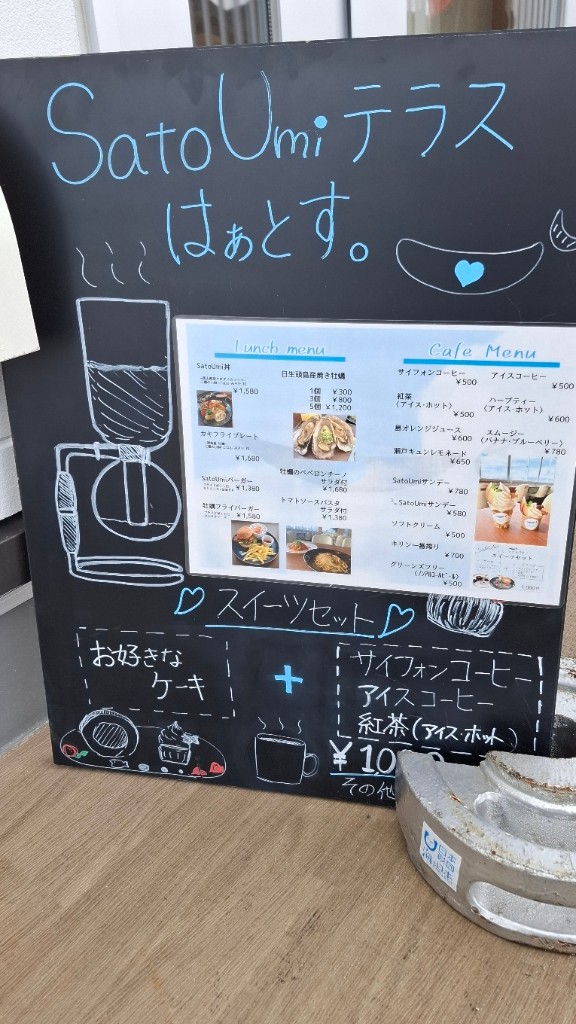 SatoUmiテラス
はぁとす。
Lunch menu
SatoUmi丼
¥1,580
カキフライプレート
¥1,680
SatoUmiバーガー
¥1,380
牡蠣フライバーガー
¥1,580
日生頭島産焼き牡蠣
1個 ¥300
3個 ¥800
5個 ¥1,200
牡蠣のペペロンチーノ
サラダ付
¥1,680
トマトソースパスタ
サラダ付
¥1,380
Cafe Menu
サイフォンコーヒー
¥500
紅茶
(アイス・ホット)
¥500
島オレンジジュース
¥600
瀬戸キュンレモネード
¥650
SatoUmiサンデー
¥780
SatoUmiサンデー
¥580
ソフトクリーム
¥500
キリン一番搾り
¥700
グリーンズフリー
(ノンアルコールビール)
¥500
アイスコーヒー
¥500
ハーブティー
(アイス・ホット)
¥600
スムージー
(バナナ・ブルーベリー)
¥780
スイーツセット
スイーツセット
お好きな
ケーキ
+
サイフォンコーヒー
アイスコーヒー
紅茶(アイス・ホット)
¥10
その他
日本
財団